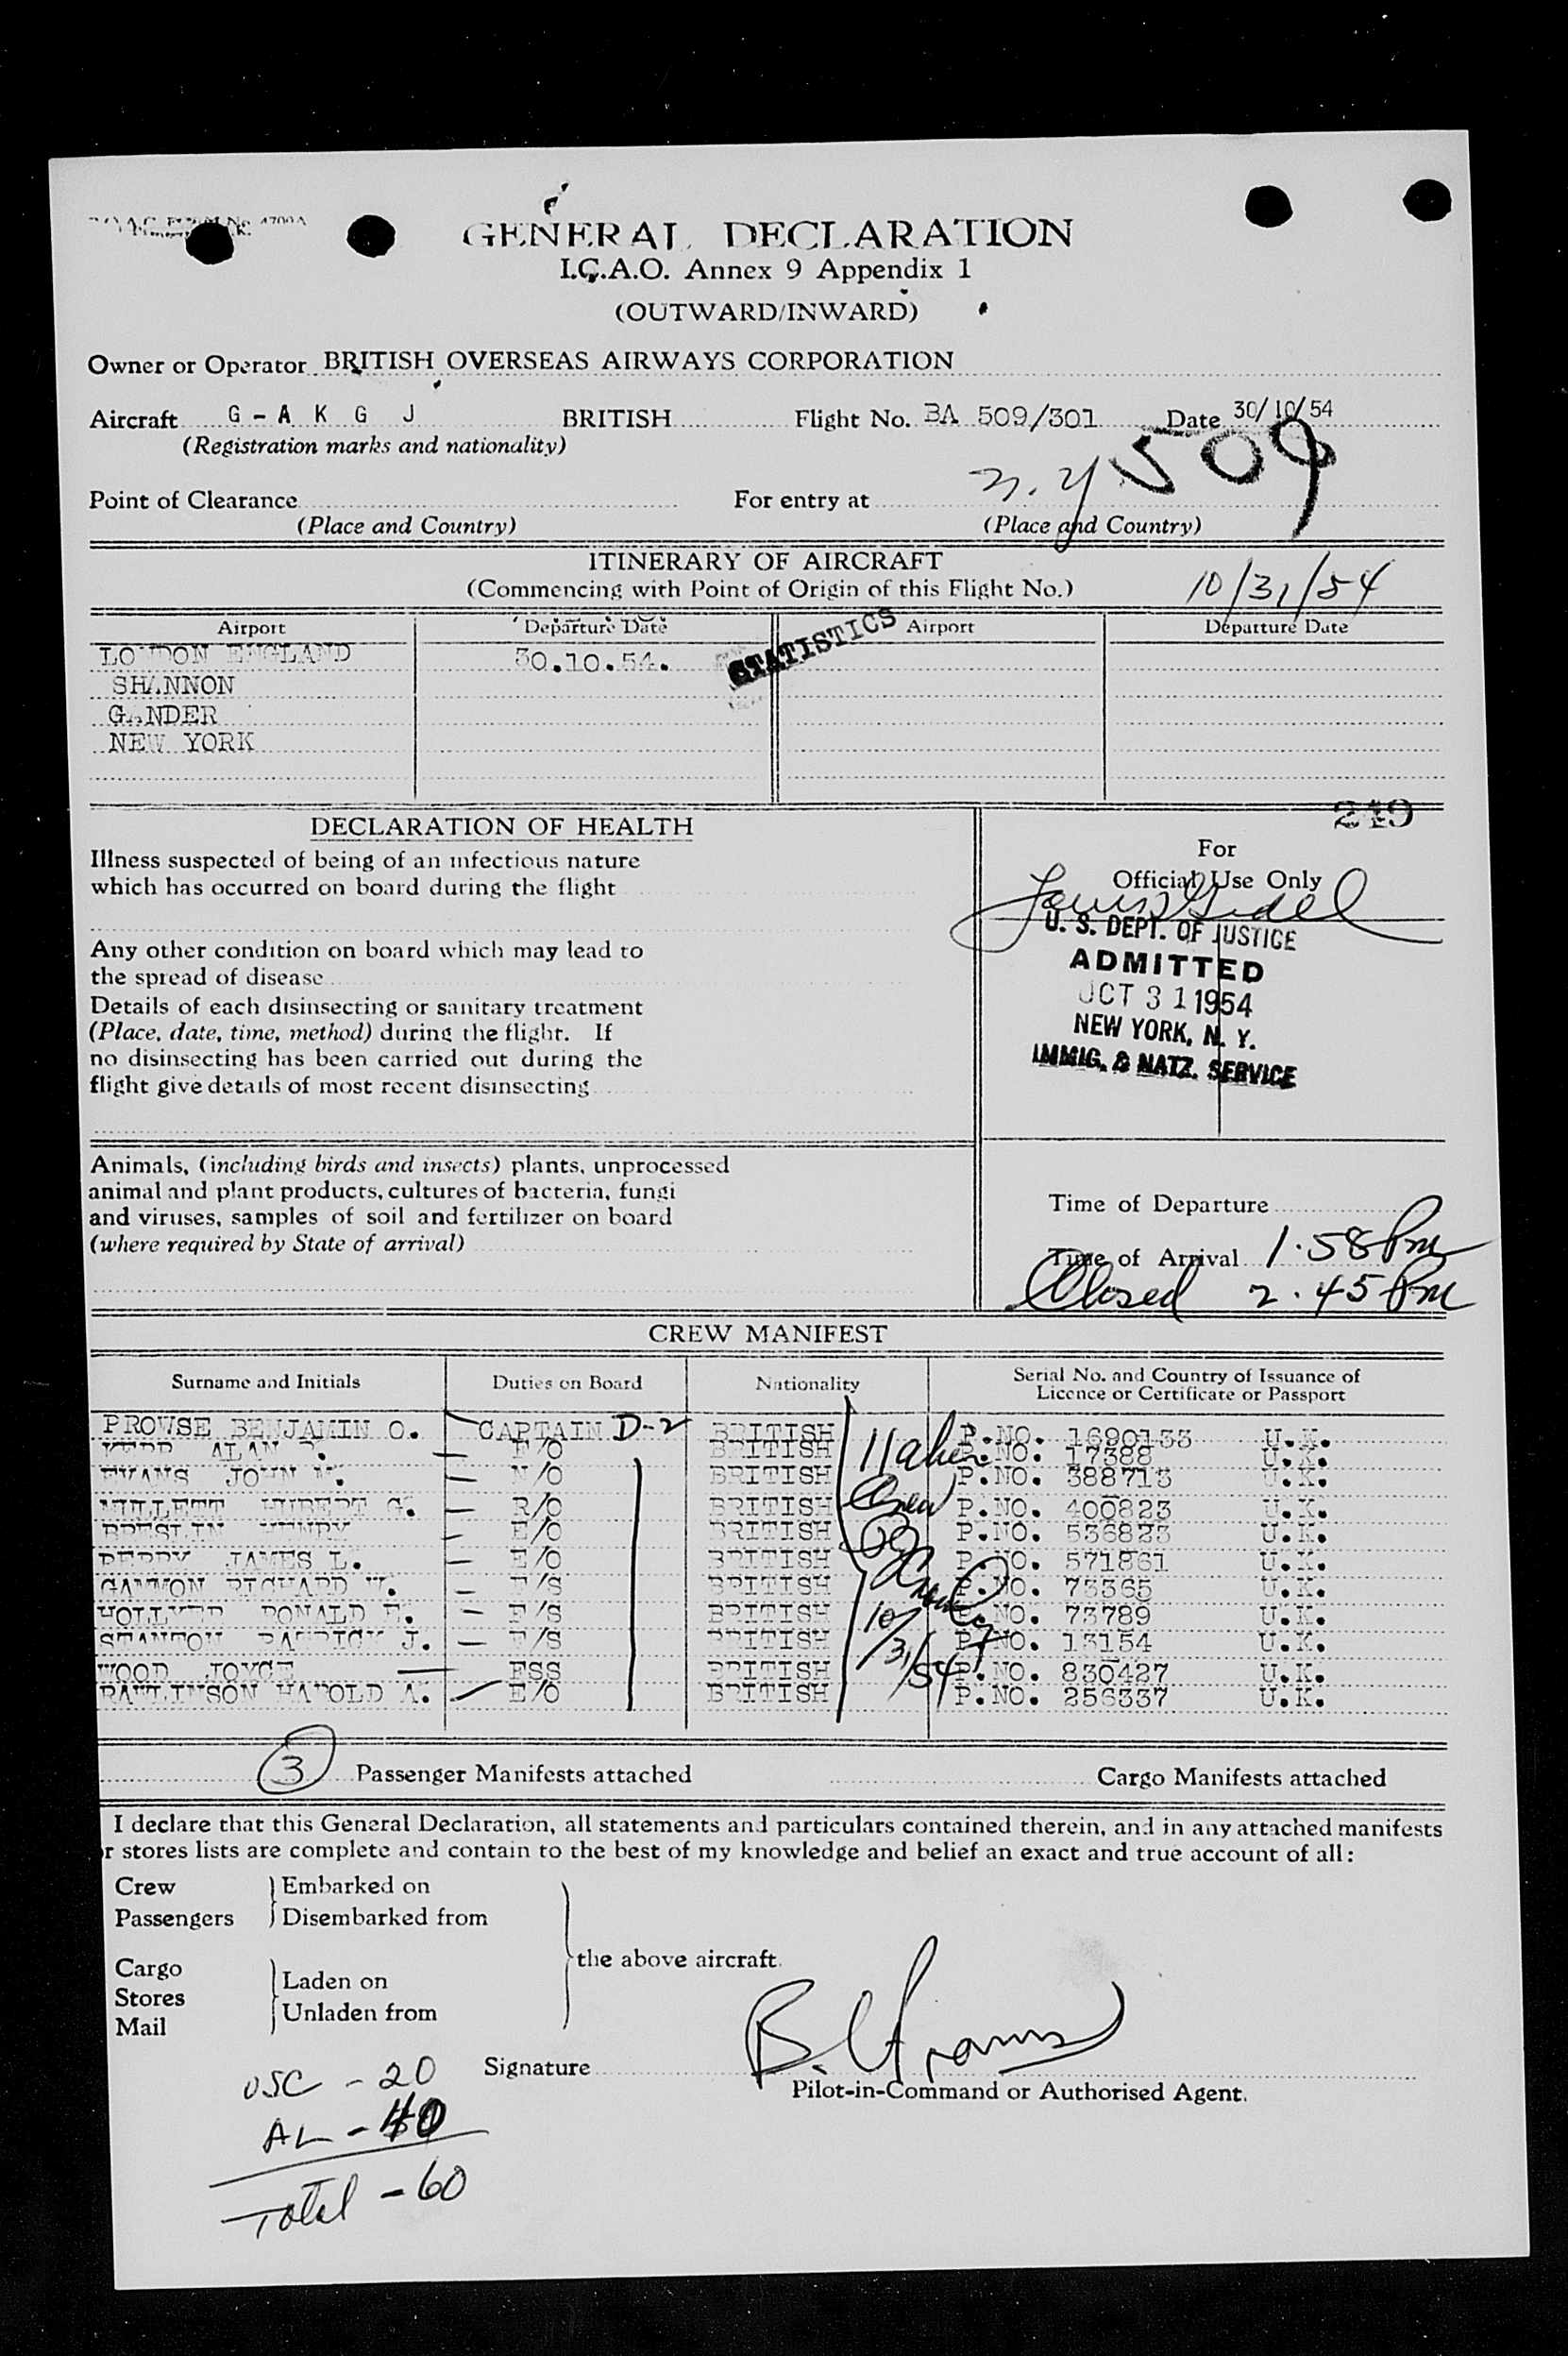 GENERAL DECLARATION
I.C.A.O. Annex 9 Appendix 1
(OUTWARD/INWARD)
Owner or Operator BRITISH OVERSEAS AIRWAYS CORPORATION
Aircraft G - A K G J BRITISH Flight No. BA 509/301 Date 30/10/54
(Registration marks and nationality)
509
Point of Clearance For entry at N.Y
(Place and Country) (Place and Country)
ITINERARY OF AIRCRAFT
(Commencing with Point of Origin of this Flight No.) 10/31/54
Airport Departure Date STATISTICS Airport Departure Date
LONDON ENGLAND 30.10.54.
SHANNON
GANDER
NEW YORK
249
DECLARATION OF HEALTH
Illness suspected of being of an infectious nature
which has occurred on board during the flight
Any other condition on board which may lead to
the spread of disease
Details of each disinsecting or sanitary treatment
(Place, date, time, method) during the flight. If
no disinsecting has been carried out during the
flight give details of most recent disinsecting
For
Official Use Only
U. S. DEPT. OF JUSTICE
ADMITTED
OCT 31 1954
NEW YORK, N. Y.
IMMIG. & NATZ. SERVICE
Animals, (including birds and insects) plants, unprocessed
animal and plant products, cultures of bacteria, fungi
and viruses, samples of soil and fertilizer on board
(where required by State of arrival)
Time of Departure
Time of Arrival 1.58 Pm
Closed 2.45 Pm
CREW MANIFEST
Surname and Initials Duties on Board Nationality Serial No. and Country of Issuance of
Licence or Certificate or Passport
PROWSE BENJAMIN O. CAPTAIN D-2 BRITISH P.NO. 1690133 U.K.
ALAN F/O BRITISH P.NO. 17388 U.K.
EVANS JOHN N/O BRITISH P.NO. 388713 U.K.
MILLETT HUBERT G. R/O BRITISH P.NO. 400823 U.K.
BRESLIN HENRY E/O BRITISH P.NO. 536823 U.K.
PERRY JAMES L. E/O BRITISH P.NO. 571861 U.K.
GAMMON RICHARD W. F/S BRITISH P.NO. 73365 U.K.
HOLLYER RONALD F/S BRITISH P.NO. 73789 U.K.
STANTON PATRICK J. F/S BRITISH P.NO. 13154 U.K.
WOOD JOYCE FSS BRITISH P.NO. 830427 U.K.
RAWLINSON HAROLD A. E/O BRITISH P.NO. 256337 U.K.
11 alien
Crew
10/31/54
3 Passenger Manifests attached Cargo Manifests attached
I declare that this General Declaration, all statements and particulars contained therein, and in any attached manifests
r stores lists are complete and contain to the best of my knowledge and belief an exact and true account of all:
Crew Embarked on
Passengers Disembarked from
the above aircraft.
Cargo
Stores Laden on
Mail Unladen from
Signature
Pilot-in-Command or Authorised Agent.
USC - 20
AL - 40
Total - 60